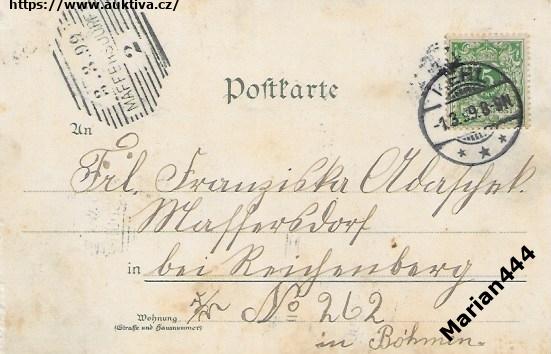 https://www.auktiva.cz/
MAFFERSDORF
3.3.99
2
Postkarte
5
1.3.99.8-9N
An
Frl. Franziska Adaschek.
Maffersdorf
in bei Reichenberg
No 262
Wohnung
(Straße und Hausnummer)
in Böhmen.
Marian444